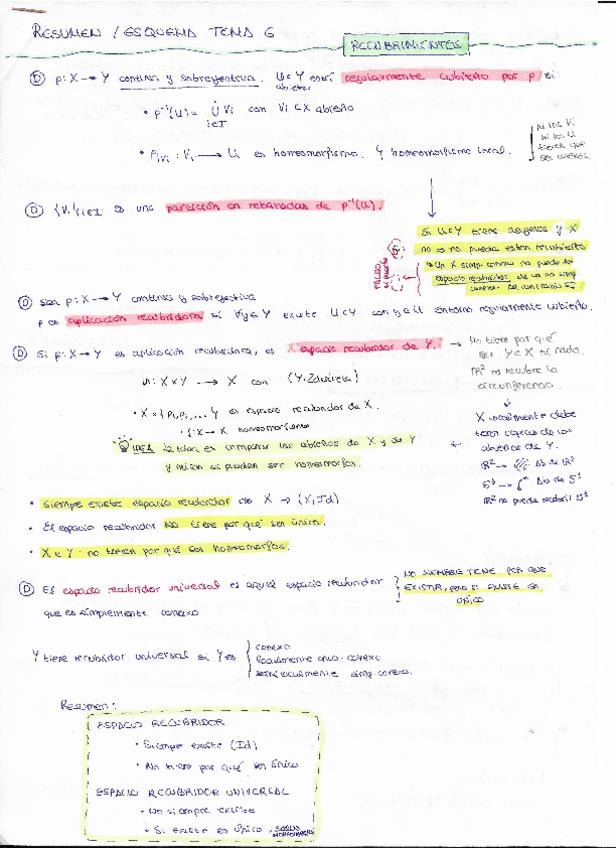 RESUMEN / ESQUEMA TEMA 6
RECUBRIMIENTOS
D p: X → Y continua y sobreyectiva. U⊂Y está regularmente cubierto por p si
abierto
• p⁻¹(U) = ⋃ Vi con Vi ⊂ X abierto
i∈I
• p|Vi : Vi → U es homeomorfismo. Y homeomorfismo local.
Ni los Vi
ni los U
tienen que
ser conexos.
D {Vi}i∈I es una partición en rebanadas de p⁻¹(U).
Si U⊂Y tiene agujeros y X
no ⇒ no puede estar recubierto
Un X simp. conexo no puede ser
espacio recubridor de uno no simp.
conexo. Al contrario sí
FALSO
D Sean p: X → Y continua y sobreyectiva
p es aplicación recubridora si ∀y∈Y existe U⊂Y con y∈U entorno regularmente cubierto.
D Si p: X → Y es aplicación recubridora, es X espacio recubridor de Y.
→ No tiene por qué
ser Y⊂X ni nada.
ℝ² no recubre la
circunferencia
X × Y → X con (Y: Discreta)
• X × {p₁, p₂ ... } es espacio recubridor de X.
• f: X → X homeomorfismo
IDEA La idea es comparar los abiertos de X y de Y
y mirar si pueden ser homeomorfos.
X localmente debe
tener copias de los
abiertos de Y.
ℝ² → Ab de ℝ²
S¹ → Ab de S¹
ℝ² no puede recubrir S¹
• Siempre existe espacio recubridor de X → (X, Id)
• El espacio recubridor NO tiene por qué ser único.
• X e Y no tienen por qué ser homeomorfos.
D El espacio recubridor universal es aquel espacio recubridor
que es simplemente conexo
NO SIEMPRE TIENE POR QUÉ
EXISTIR, PERO SI EXISTE ES
ÚNICO
Y tiene recubridor universal si Y es
conexo
localmente arco-conexo
semilocalmente simp. conexo.
Resumen:
ESPACIO RECUBRIDOR
• Siempre existe (Id)
• No tiene por qué ser único
ESPACIO RECUBRIDOR UNIVERSAL
• No siempre existe
• Si existe es único, salvo homeomorfismos